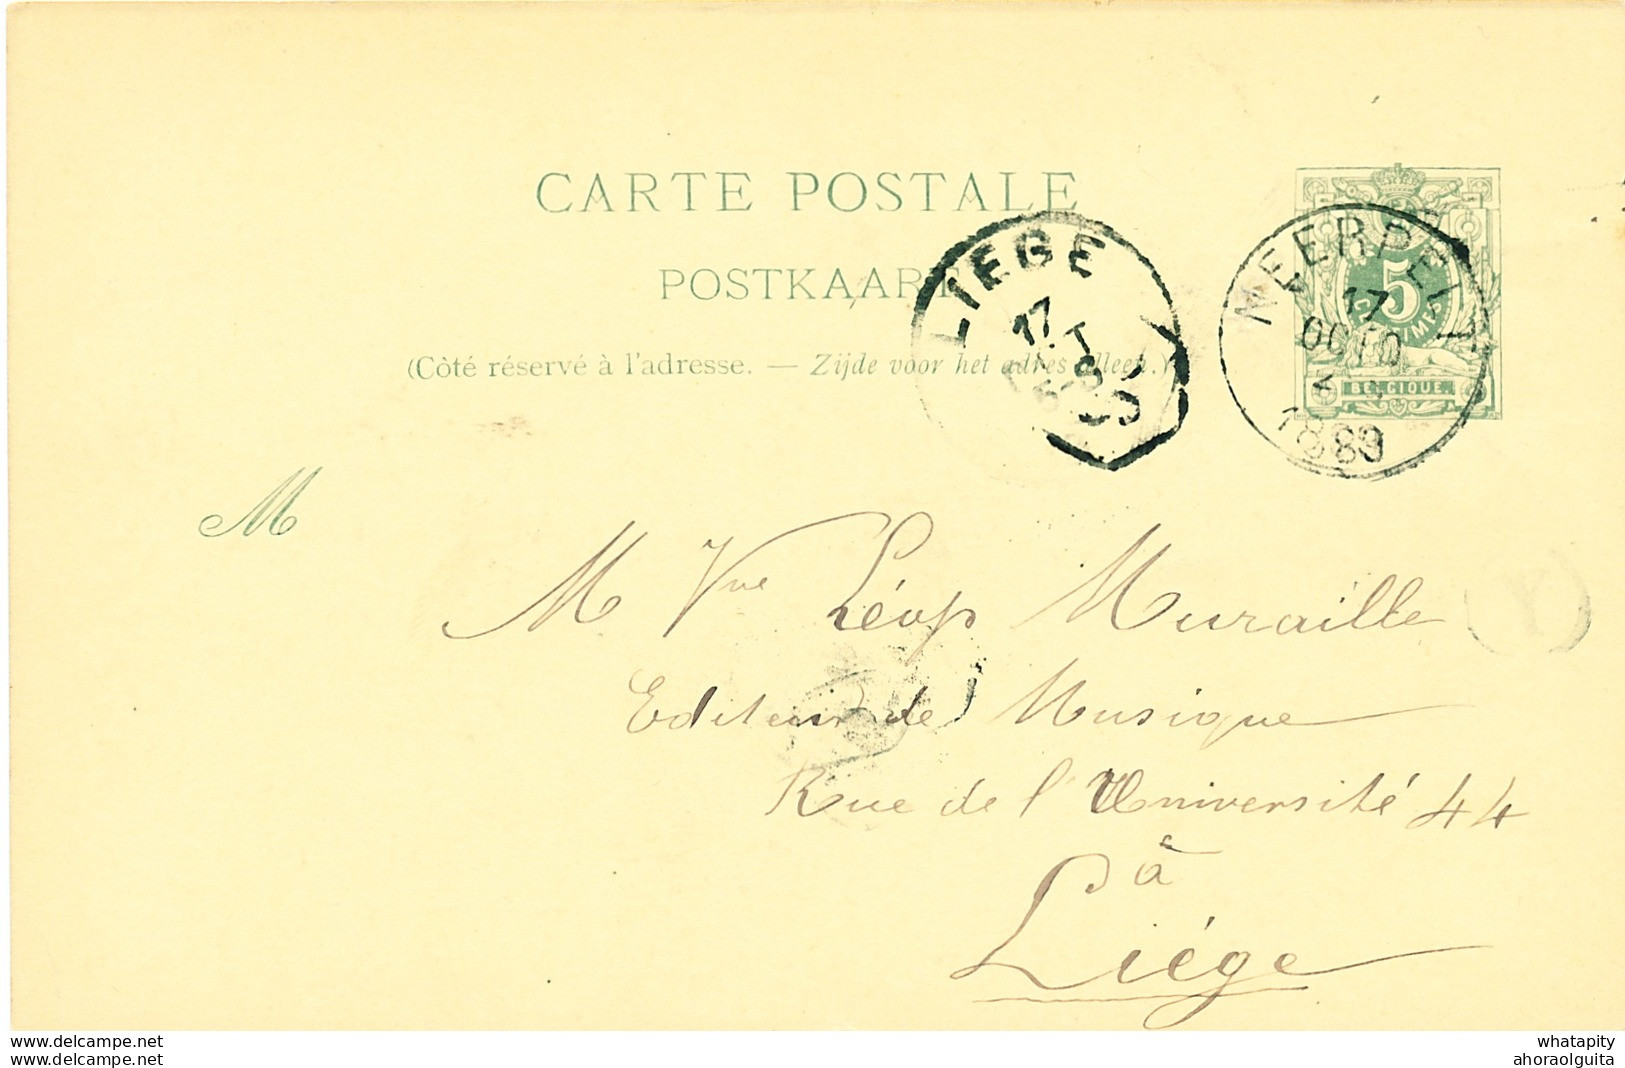 CARTE POSTALE
POSTKAART
(Côté réservé à l'adresse. — Zijde voor het adres alleen.)
LIEGE
17
NEERPELT
17
OCT
1889
5
BELGIQUE
M
M Vve Léop Muraille
Editeur de Musique
Rue de l'Université 44
à
Liége
Y
whatapity
ahoraolguita
whatapity
ahoraolguita